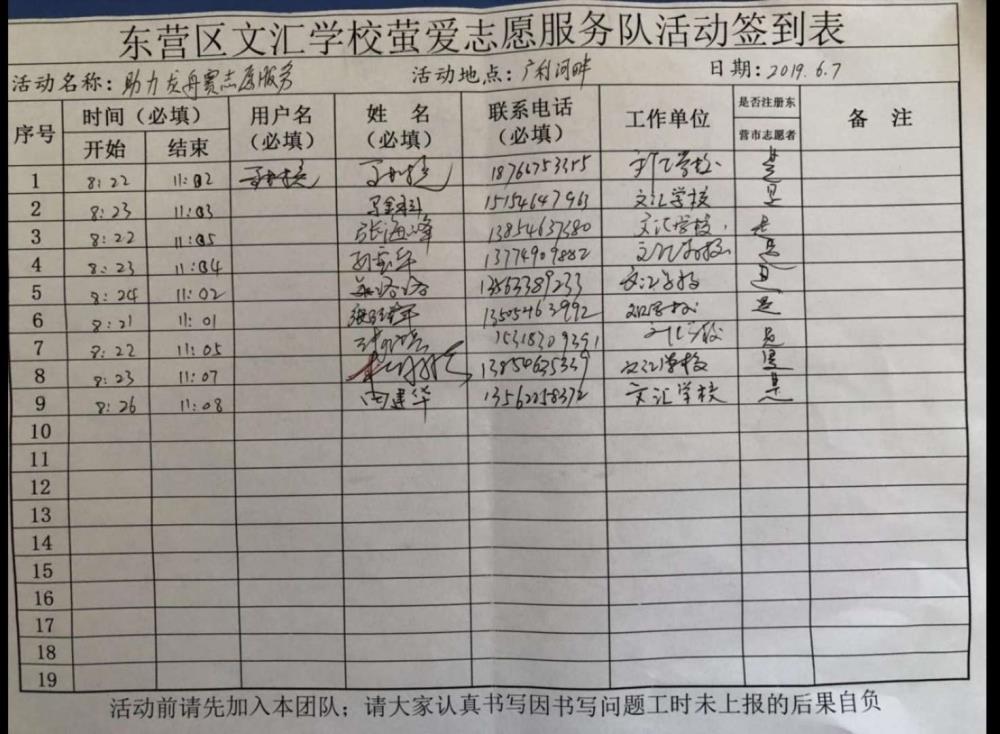 东营区文汇学校萤爱志愿服务队活动签到表
活动名称：助力龙舟赛志愿服务 活动地点：广利河畔 日期：2019.6.7
序号 时间（必填） 用户名（必填） 姓 名（必填） 联系电话（必填） 工作单位 是否注册东营市志愿者 备 注
开始 结束
1 8:22 11:02 18766753355 文汇学校 是
2 8:23 11:03 15154647963 文汇学校 是
3 8:22 11:05 张海峰 13854637380 文汇学校 是
4 8:23 11:04 13774909882 文汇学校 是
5 8:24 11:02 13563389233 文汇学校 是
6 8:21 11:01 13505463992 文汇学校 是
7 8:22 11:05 15318309391 文汇学校 是
8 8:23 11:07 13854635339 文汇学校 是
9 8:26 11:08 尚建华 13562258372 文汇学校 是
10
11
12
13
14
15
16
17
18
19
活动前请先加入本团队；请大家认真书写因书写问题工时未上报的后果自负